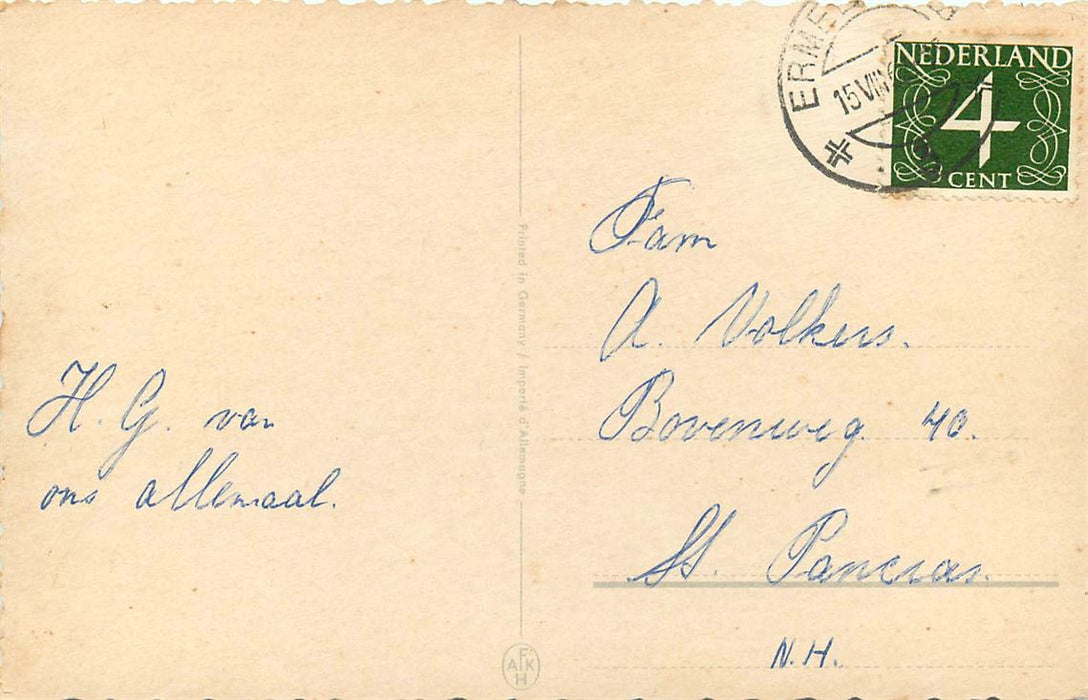 NEDERLAND
4
CENT
15 VIII
Fam
A. Volkers.
Bovenweg 40.
St. Pancras.
N.H.
H. G. van
ons allemaal.
Printed in Germany / Importé d'Allemagne
AFKH